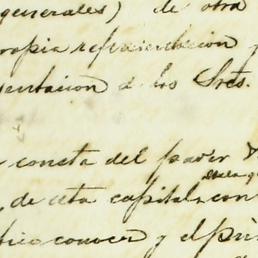 generales) de otra
ropia representacion y
sentacion a los Sres.
consta del poder
de esta capital, con
conocer y el pri